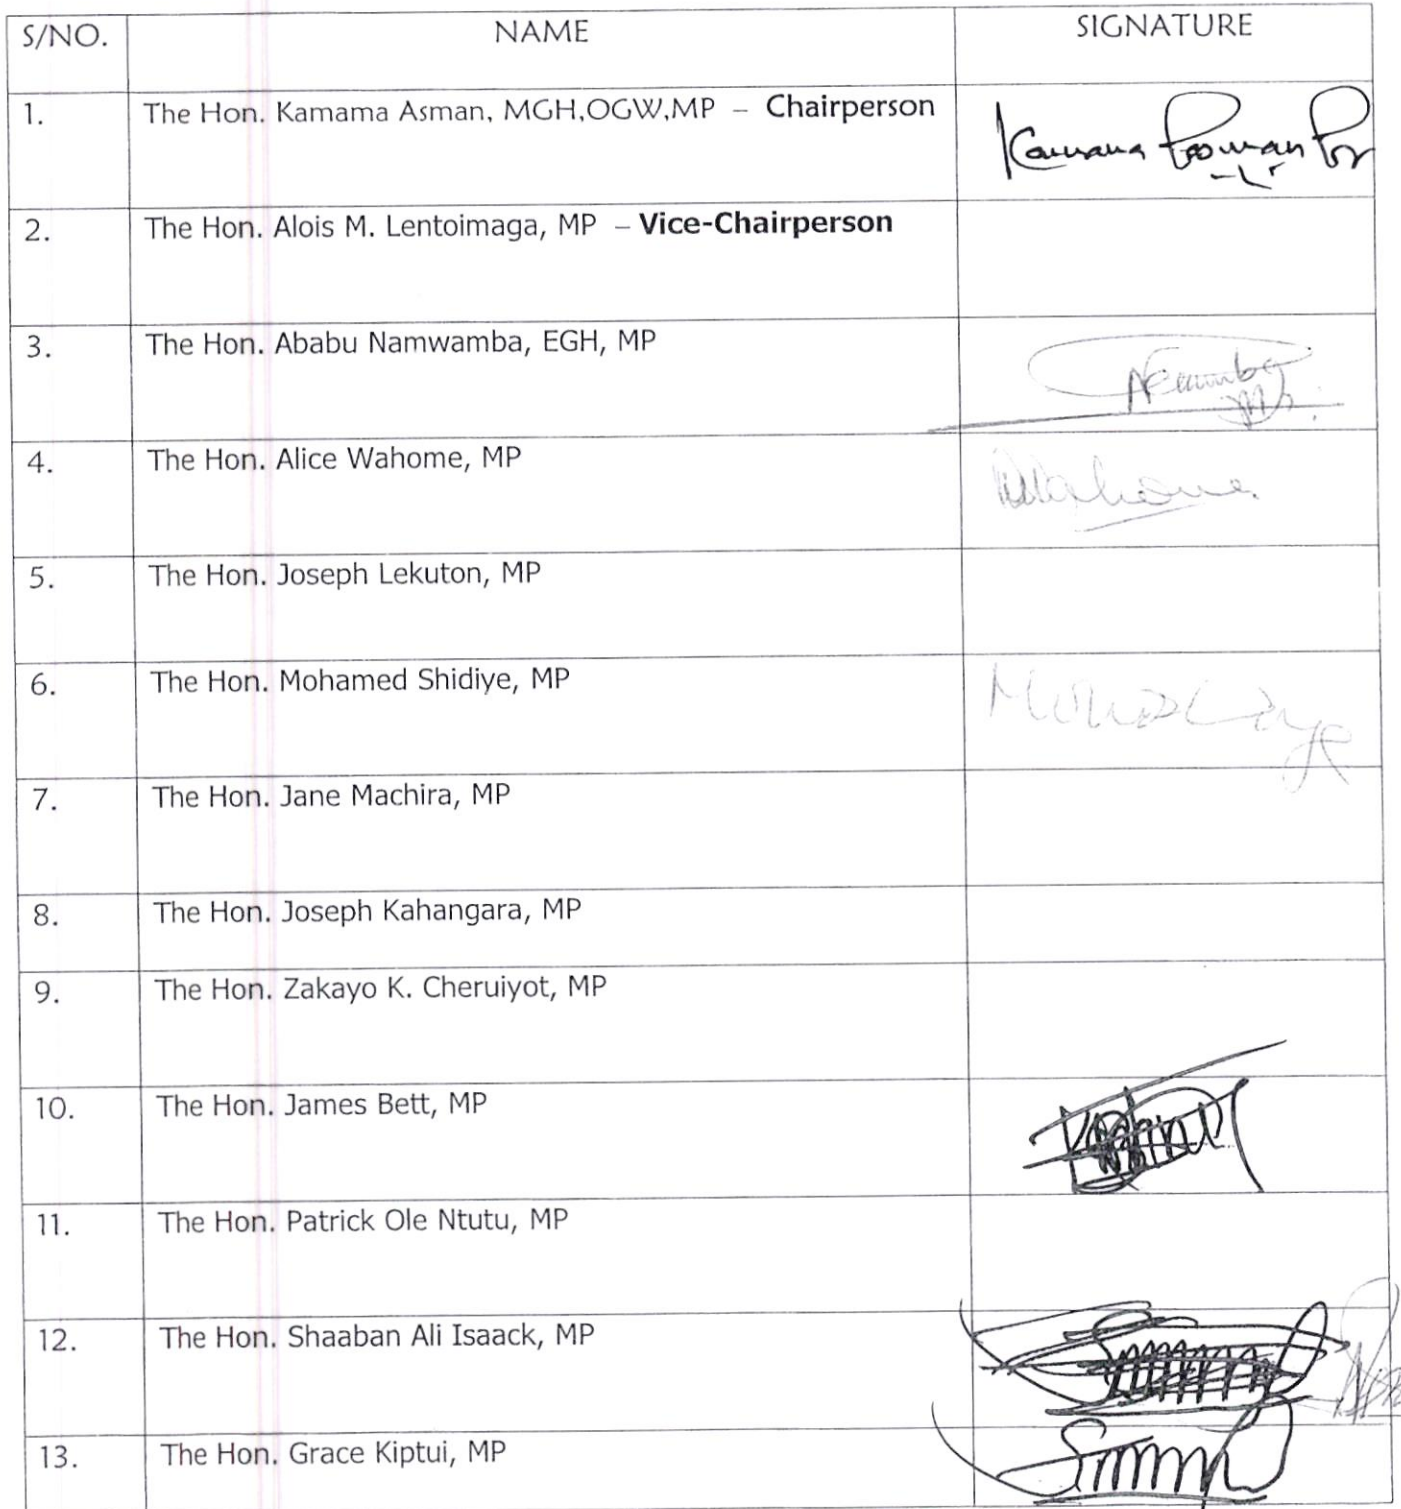 S/NO. NAME SIGNATURE
1. The Hon. Kamama Asman, MGH,OGW,MP – Chairperson Kamama
2. The Hon. Alois M. Lentoimaga, MP – Vice-Chairperson
3. The Hon. Ababu Namwamba, EGH, MP
4. The Hon. Alice Wahome, MP
5. The Hon. Joseph Lekuton, MP
6. The Hon. Mohamed Shidiye, MP
7. The Hon. Jane Machira, MP
8. The Hon. Joseph Kahangara, MP
9. The Hon. Zakayo K. Cheruiyot, MP
10. The Hon. James Bett, MP
11. The Hon. Patrick Ole Ntutu, MP
12. The Hon. Shaaban Ali Isaack, MP
13. The Hon. Grace Kiptui, MP